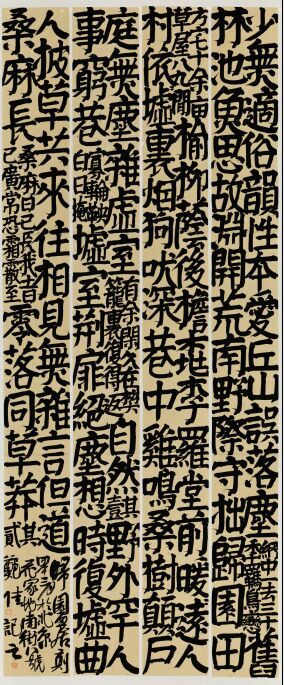 少無適俗韻性本愛丘山誤落塵網中一去三十年羈鳥戀舊
林池魚思故淵開荒南野際守拙歸園田
方宅十餘畝草屋八九間榆柳蔭後檐桃李羅堂前曖遠人
村依墟裏煙狗吠深巷中雞鳴桑樹顛戶
庭無塵雜虛室有餘閒久在樊籠裏復得返自然其壹野外罕人
事窮巷寡輪鞅白日掩墟室荊扉絕塵想時復墟曲
人披草共來往相見無雜言但道
桑麻長桑麻日已長我土日已廣常恐霜霰至零落同草莽其貳
歸園田居